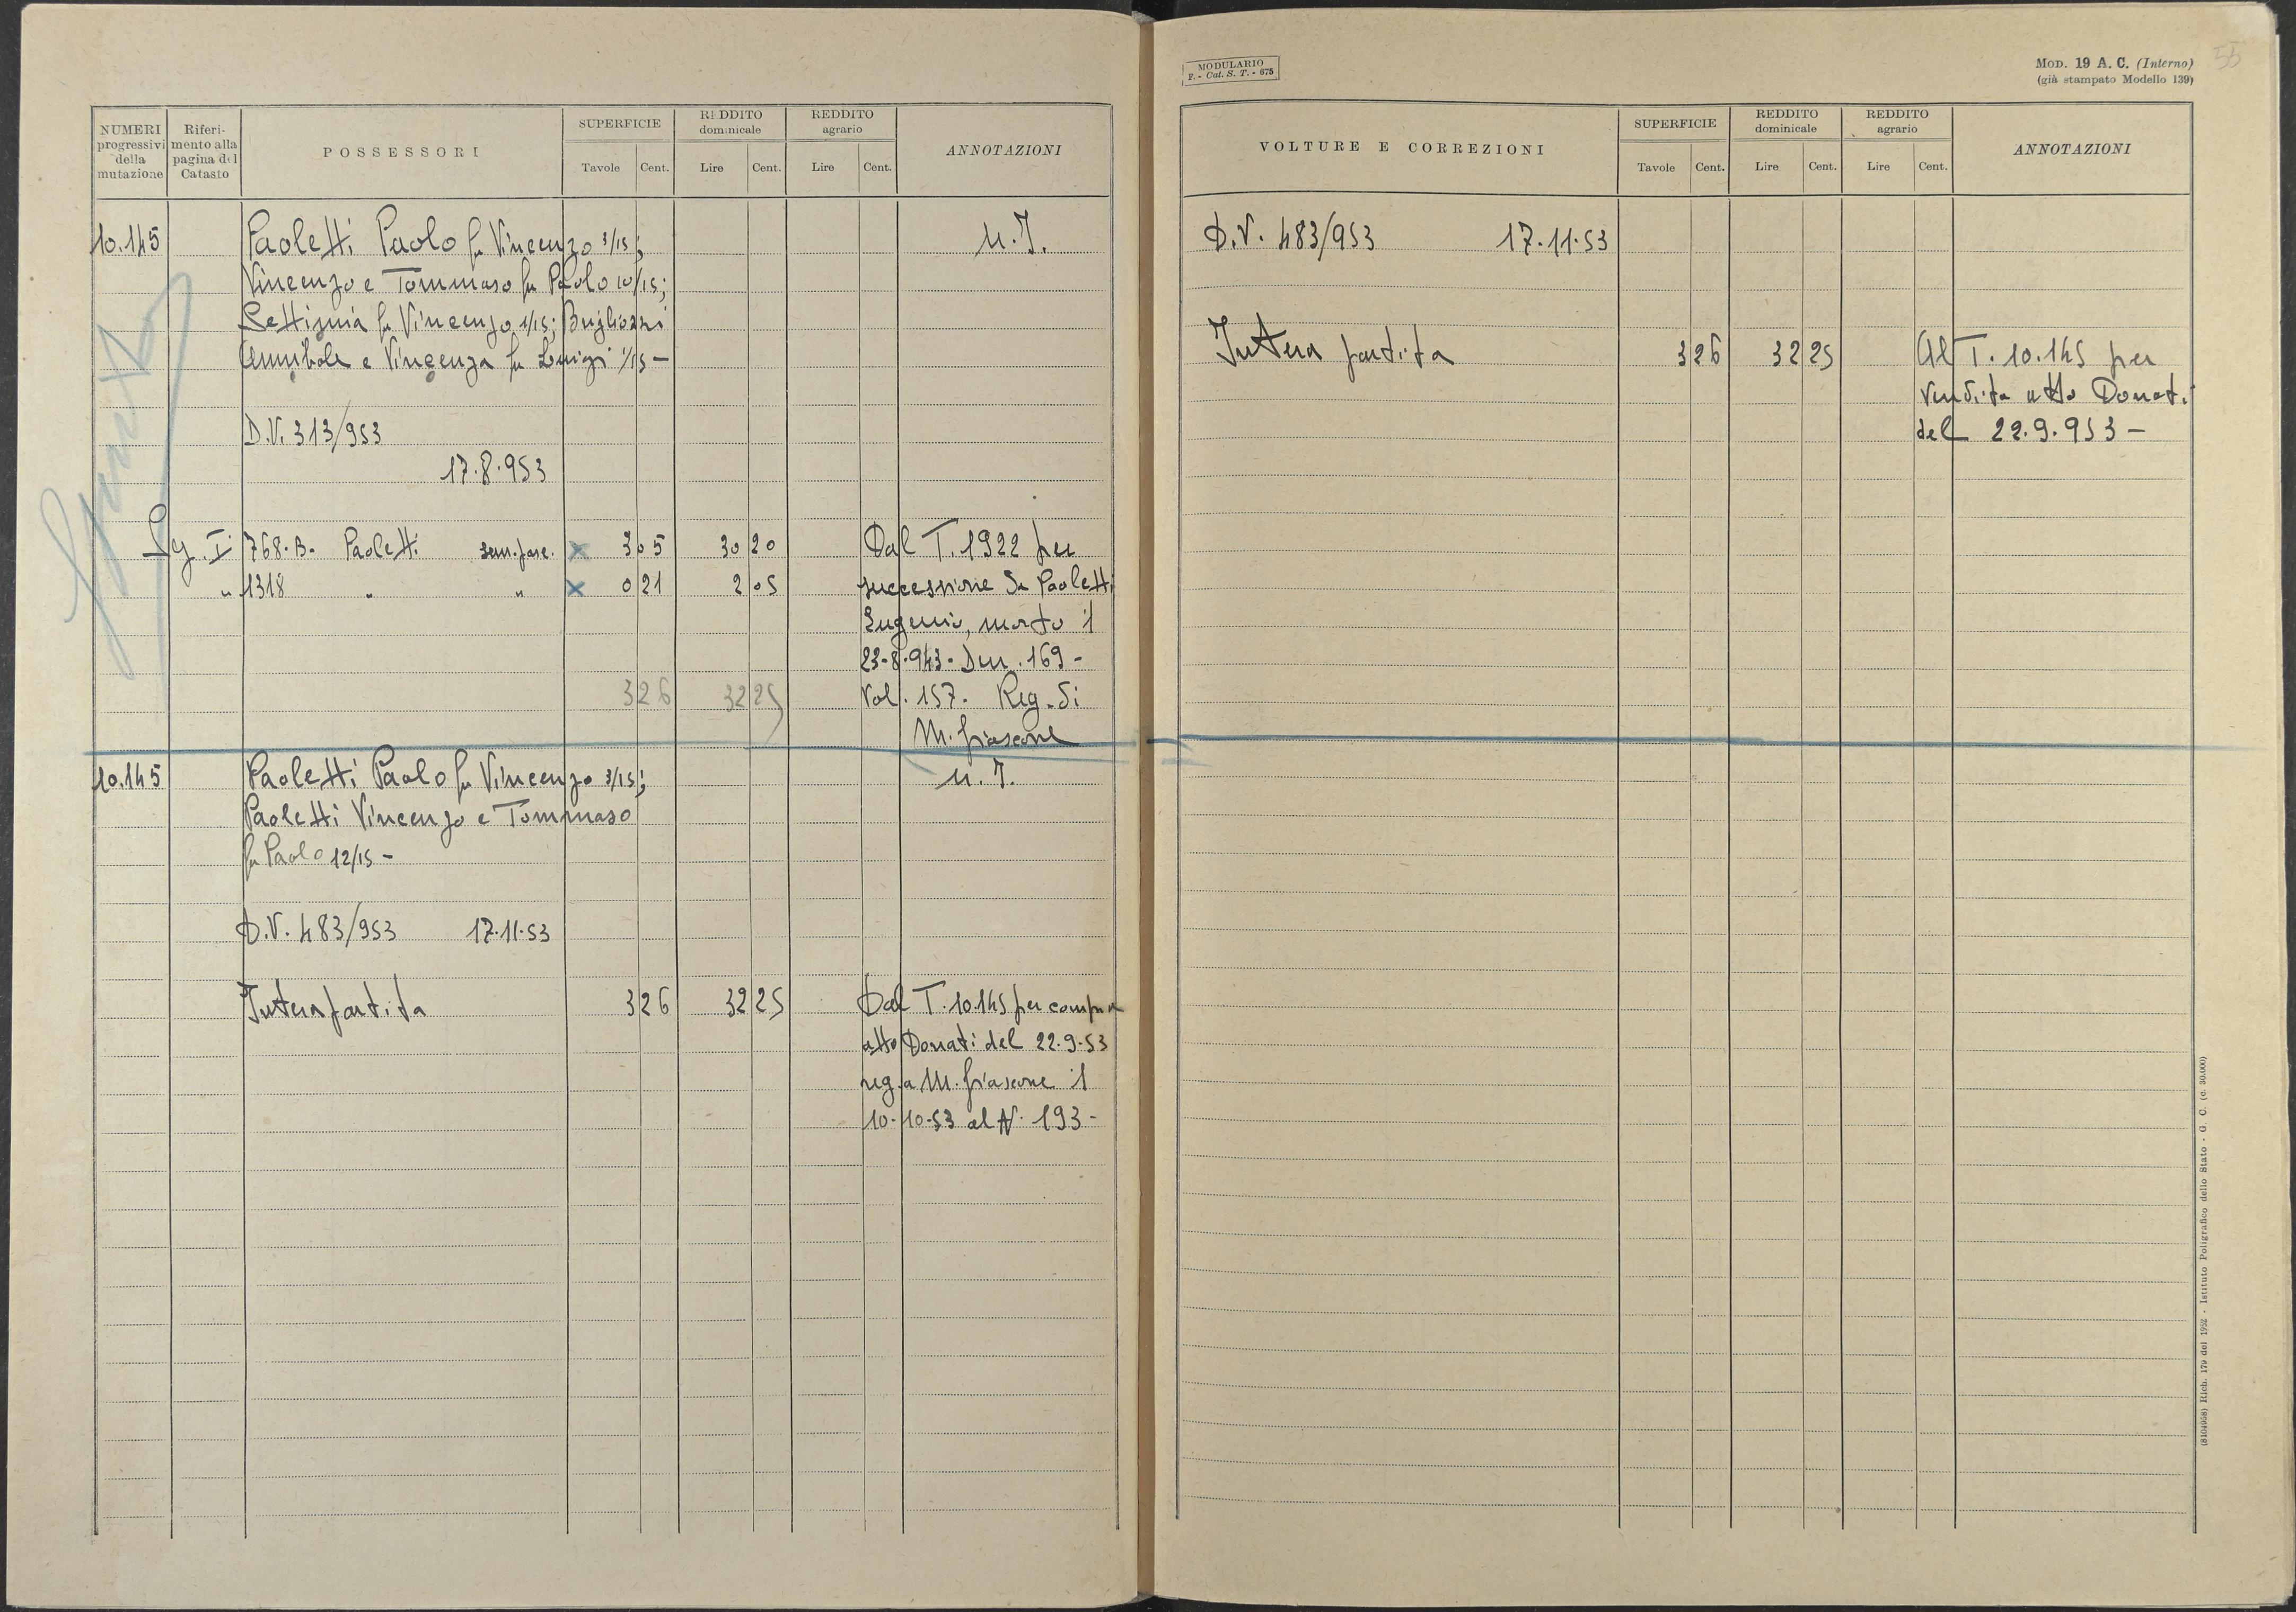 NUMERI progressivi della mutazione
Riferimento alla pagina del Catasto
POSSESSORI
SUPERFICIE
Tavole Cent.
REDDITO dominicale
Lire Cent.
REDDITO agrario
Lire Cent.
ANNOTAZIONI
10.145 Paoletti Paolo fu Vincenzo 3/15; u. I.
Vincenzo e Tommaso fu Paolo 10/15;
Settimia fu Vincenzo 1/15; Bugliozzi
Annibale e Vincenza fu Luigi 1/15 –
D.V. 313/953
17.8.953
Sez. I 768.B. Paoletti sem. pasc. x 3 05 30 20 Dal T. 1922 per
" 1318 " " x 0 21 2 05 successione di Paoletti
Eugenio, morto il
23-8-943- Den. 169 -
3 26 32 25 Vol. 157. Reg. di
M. fiascone
10.145 Paoletti Paolo fu Vincenzo 3/15; u. I.
Paoletti Vincenzo e Tommaso
fu Paolo 12/15 –
D.V. 483/953 17.11.53
Intera partita 3 26 32 25 Dal T. 10.145 per compra
atto Donati del 22.9.53
reg. a M. fiascone il
10-10-53 al N. 193 -
MODULARIO
F. - Cat. S. T. - 675
MOD. 19 A. C. (Interno)
(già stampato Modello 139)
55
VOLTURE E CORREZIONI
SUPERFICIE
Tavole Cent.
REDDITO dominicale
Lire Cent.
REDDITO agrario
Lire Cent.
ANNOTAZIONI
D.V. 483/953 17.11.53
Intera partita 3 26 32 25 Al T. 10.145 per
vendita atto Donati
del 22.9.953 –
(8104958) Rich. 179 del 1952 - Istituto Poligrafico dello Stato - G. C. (c. 30.000)